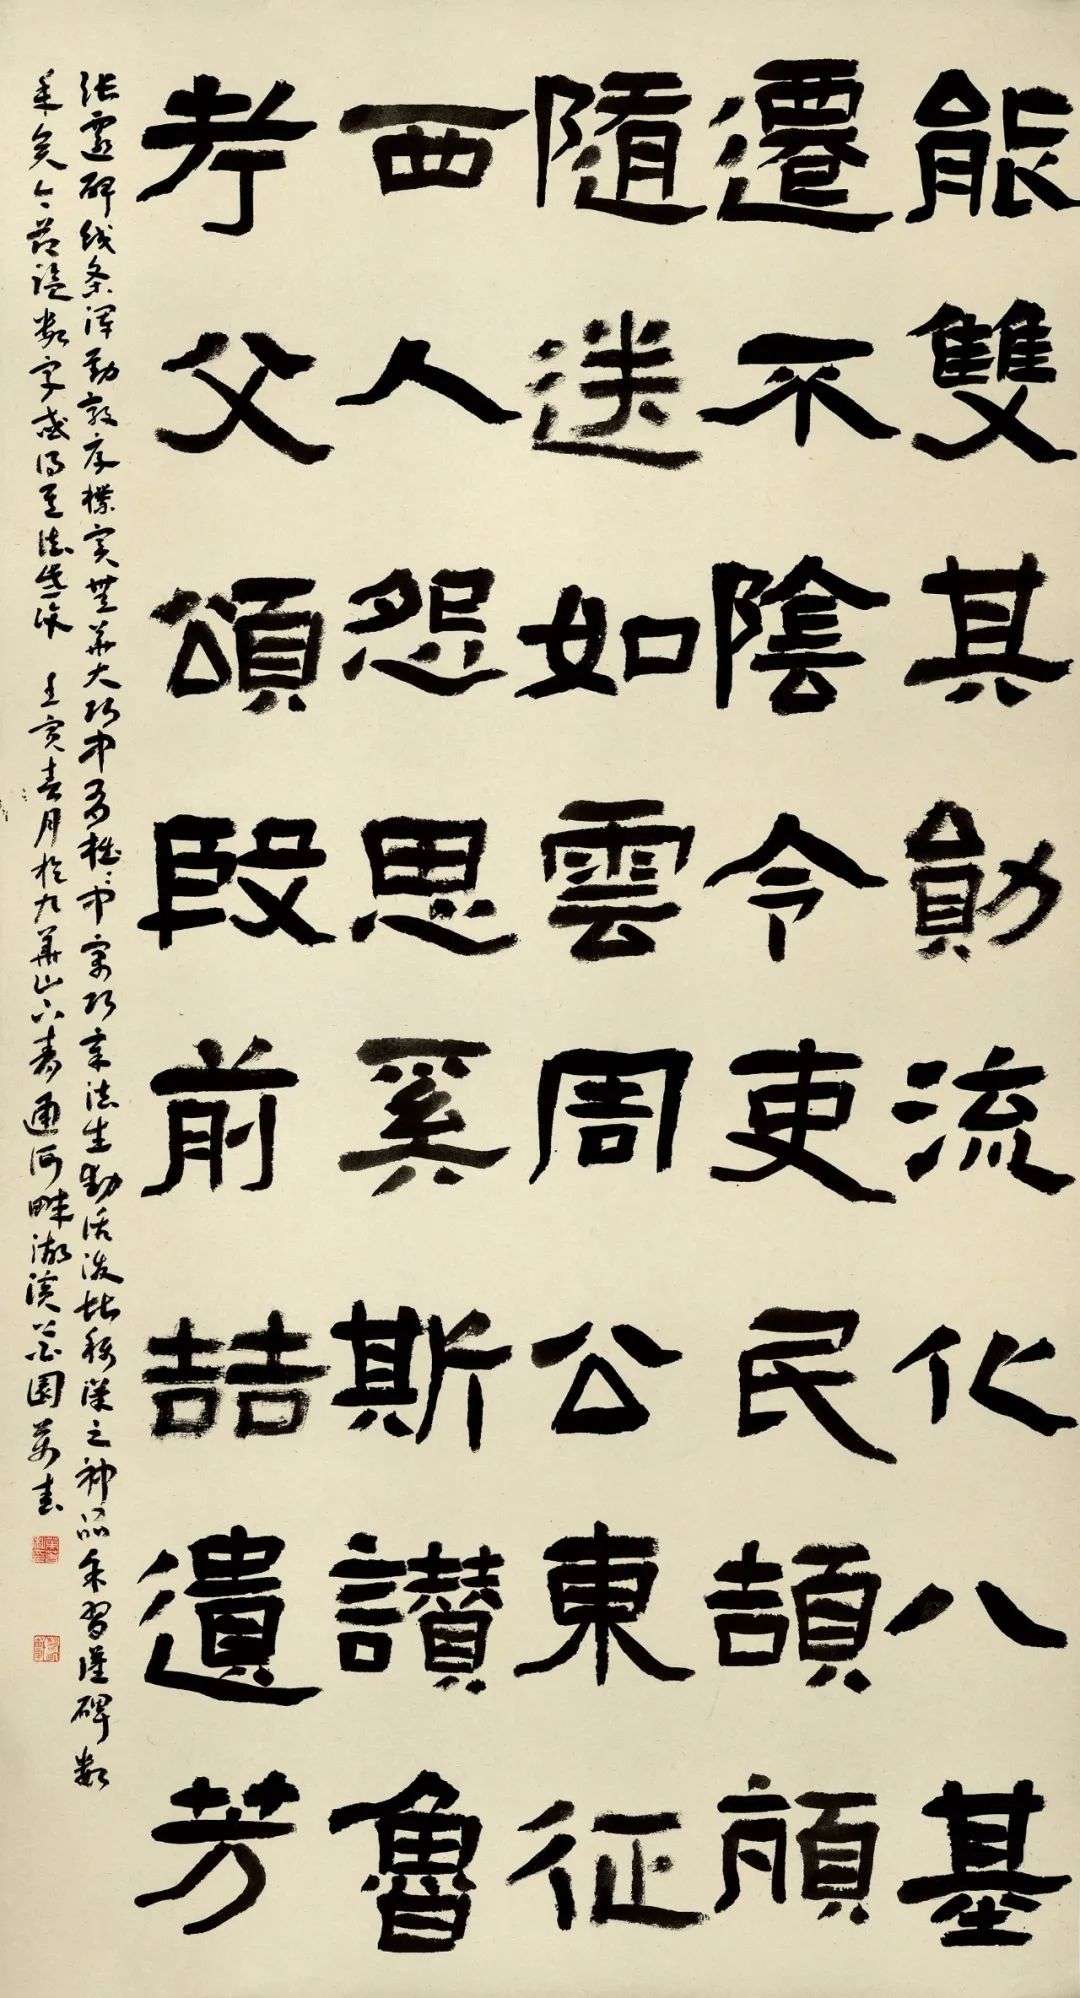 能雙其勛流化八基
遷不陰令吏民頡頏
隨送如雲周公東征
西人怨思奚斯讚魯
考父頌殷前喆遺芳
張遷碑线条渾勁敦厚樸實無華大巧中有拙拙中寓巧章法生動活潑堪称漢之神品余習漢碑數
年矣今節臨數字或得其法焉 壬寅春月於九華山下青通河畔